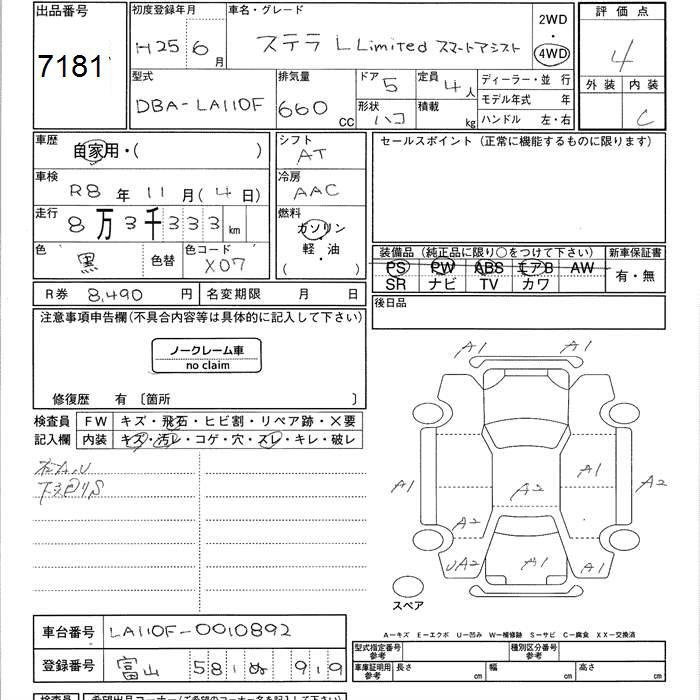 出品番号
7181
初度登録年月
H25 6月
車名・グレード
ステラ L Limited スマートアシスト
2WD
・
4WD
評価点
4
外装 内装
C
型式
DBA-LA110F
排気量
660 CC
ドア 5
形状 ハコ
定員 4人
積載 kg
ディーラー・並 行
モデル年式 年
ハンドル 左・右
車歴
自家用・( )
シフト
AT
セールスポイント (正常に機能するものに限ります)
車検
R8年 11月(4日)
冷房
AAC
走行
8万3千333km
燃料
ガソリン
軽・油
( )
色
黒
色替
色コード
X07
装備品 (純正品に限り○をつけて下さい)
PS PW ABS エアB AW
SR ナビ TV カワ
新車保証書
有・無
R券 8,490 円
名変期限 月 日
後日品
注意事項申告欄(不具合内容等は具体的に記入して下さい)
ノークレーム車
no claim
修復歴 有〔箇所 〕
検査員
記入欄
FW キズ・飛石・ヒビ割・リペア跡・×要
内装 キズ・汚レ・コゲ・穴・スレ・キレ・破レ
A1 A1
A1 A1 A2
A2
A2
UA2 A1 A1
スペア
車台番号 LA110F-0010892
登録番号 富山 581 ぬ 919
A-キズ E-エクボ U-凹み W-補修跡 S-サビ C-腐食 XX-交換済
型式指定番号
参考
種別区分番号
参考
車庫証明用
参考
長さ cm 幅 cm 高さ cm
検査員
希望出品コーナー(ご希望のコーナー名を記入下さい)